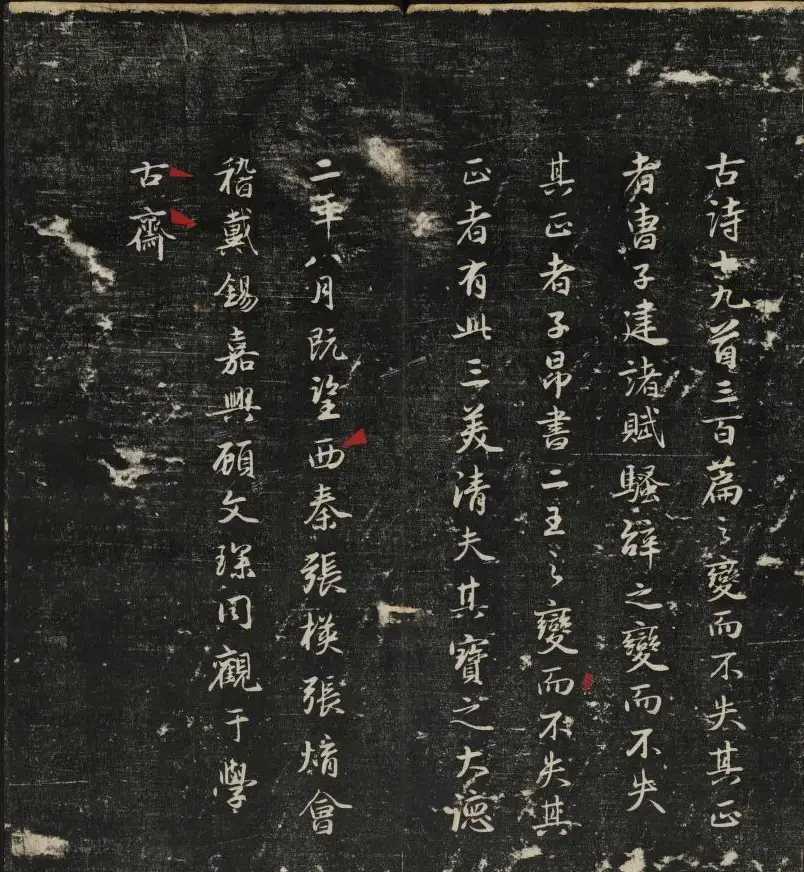 古詩十九首三百篇之變而不失其正
者曹子建諸賦騷辭之變而不失
其正者子昂書二王之變而不失其
正者有此三美清夫其寶之大德
二年八月既望西秦張楧張焴會
稽戴錫嘉興顧文琛同觀于學
古齋